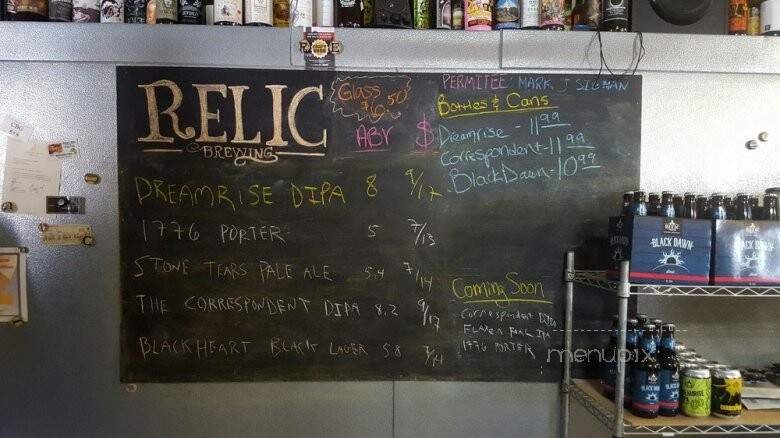 RELIC
BREWING
Glass
$6.50
ABV $
PERMITEE: MARK J SIGMAN
Bottles & Cans
Dreamrise - 11.99
Correspondent - 11.99
Black Dawn - 10.99
DREAMRISE DIPA 8 9/17
1776 PORTER 5 7/13
STONE TEARS PALE ALE 5.4 7/14
THE CORRESPONDENT DIPA 8.2 9/17
BLACKHEART BLACK LAGER 5.8 7/14
Coming Soon
Correspondent DIPA
1776 PORTER
BLACK DAWN
BLACK DAWN
menupix